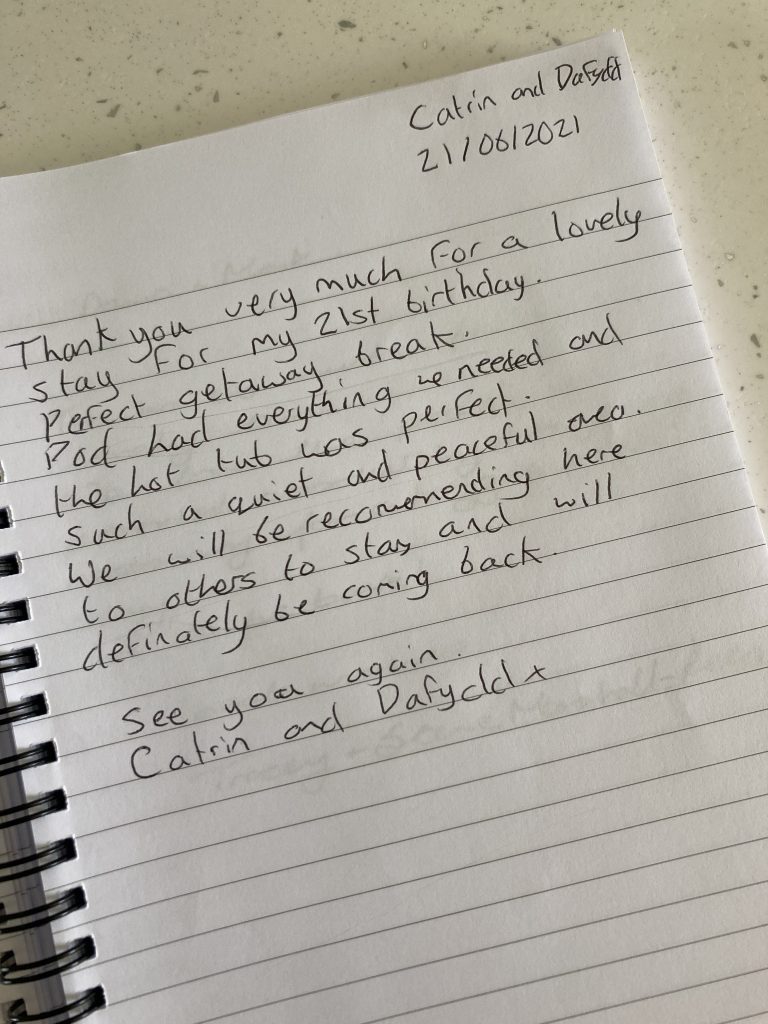 Catrin and Dafydd
21/06/2021
Thank you very much for a lovely
stay for my 21st birthday.
Perfect getaway break.
Pod had everything we needed and
the hot tub was perfect.
such a quiet and peaceful area.
We will be recomemending here
to others to stay and will
definately be coming back.
See you again.
Catrin and Dafydd x